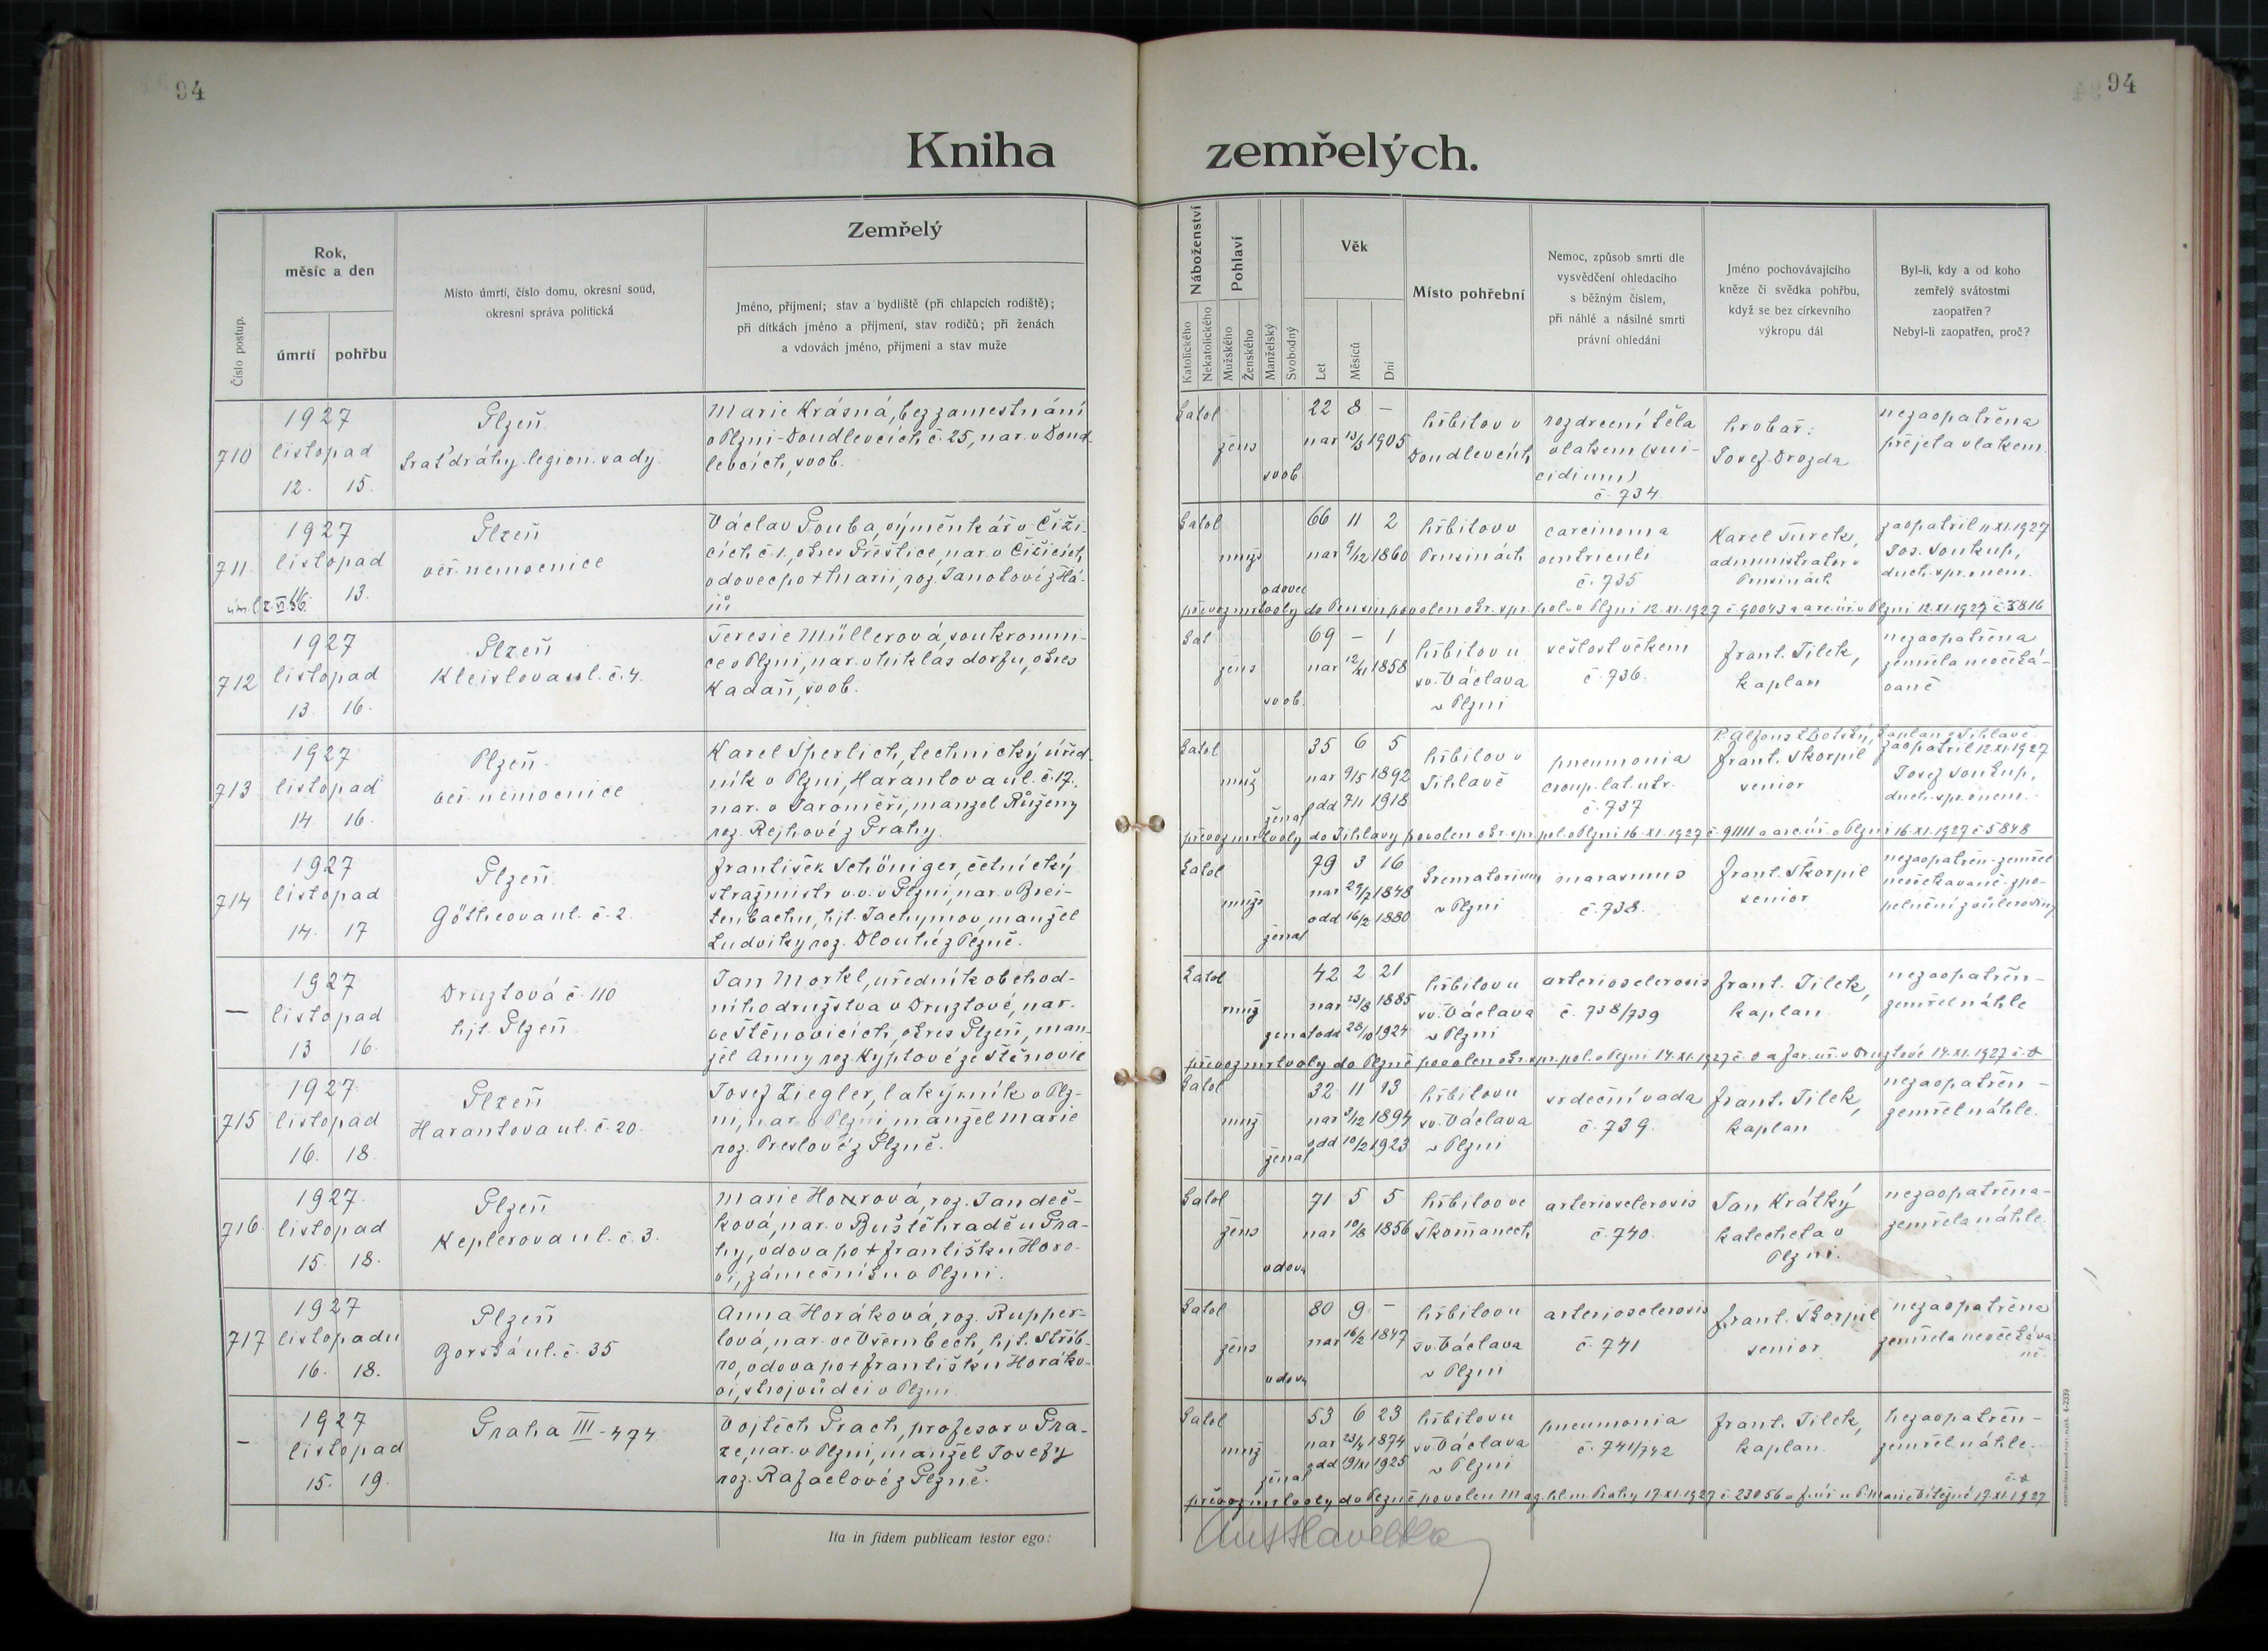 94
94
Kniha
zemřelých.
Číslo postup.
Rok,
měsíc a den
úmrtí
pohřbu
Místo úmrtí, číslo domu, okresní soud,
okresní správa politická
Zemřelý
Jméno, příjmení; stav a bydliště (při chlapcích rodiště);
při dítkách jméno a příjmení, stav rodičů; při ženách
a vdovách jméno, příjmení a stav muže
Náboženství
Katolického
Nekatolického
Pohlaví
Mužského
Ženského
Manželský
Svobodný
Věk
Let
Měsíců
Dní
Místo pohřební
Nemoc, způsob smrti dle
vysvědčení ohledacího
s běžným číslem,
při náhlé a násilné smrti
právní ohledání
Jméno pochovávajícího
kněze či svědka pohřbu,
když se bez církevního
výkropu dál
Byl-li, kdy a od koho
zemřelý svátostmi
zaopatřen?
Nebyl-li zaopatřen, proč?
710
1927
listopad
12. 15.
Plzeň
trať dráhy legion. sady
Marie Krásná, bez zamestnání
v Plzni-Doudlevcích č. 25, nar. v Doud
levcích, svob.
katol
žens
svob
22 8 –
nar 13/3 1905
hřbitov v
Doudlevcích
rozdrcení těla
vlakem (sui-
cidium)
č. 734
hrobař:
Josef Drozda
nezaopatřena
přejeta vlakem
711
1927
listopad
11. 13.
Plzeň
veř. nemocnice
Václav Pouba, výměnkář v Číži-
cích č. 1, okres Přeštice, nar. v Čížicích,
vdovec po † Marii, roz. Janotové z Há-
jů
katol
muž
vdovec
66 11 2
nar 9/12 1860
hřbitov v
Prusinách
carcinoma
ventriculi
č. 735
Karel Turek,
administrator v
Prusinách
zaopatřil 11.XI.1927
Jos. Soukup,
duch. spr. v nem.
převoz mrtvoly do Prusin povolen okr. spr. pol. v Plzni 12.XI.1927 č 90043 a arc. úř. v Plzni 12.XI.1927 č 5816
712
1927
listopad
13. 16.
Plzeň
Kleislova ul. č. 4.
Teresie Müllerová, soukromni-
ce v Plzni, nar. v Niklasdorfu, okres
Kadaň, svob.
kat
žens
svob.
69 – 1
nar 12/XI 1858
hřbitov u
sv. Václava
v Plzni
sešlost věkem
č. 736.
Frant. Jílek,
kaplan
nezaopatřena
zemřela neočeká-
vaně
713
1927
listopad
14. 16.
Plzeň
veř. nemocnice
Karel Šperlich, technický úřed
ník v Plzni, Harantova ul. č. 17.
nar. v Jaroměři, manžel Růženy
roz. Rejhové z Prahy.
katol
muž
ženat
35 6 5
nar 9/5 1892
odd 7/11 1918
hřbitov v
Jihlavě
pneumonia
croup. lat. utr.
č. 737
kaplan v Jihlavě
Frant. Škorpil
senior
zaopatřil 12.XI.1927
Josef Soukup,
duch. spr. v nem.
převoz mrtvoly do Jihlavy povolen okr. spr. pol. v Plzni 16.XI.1927 č. 91111 a arc. úř. v Plzni 16.XI.1927 č 5848
714
1927
listopad
14. 17
Plzeň
Götheova ul. č. 2.
František Schöniger, četnický
strážmistr v. v. v Plzni, nar. v Brei-
tenbachu, hjt. Jachymov, manžel
Ludviky roz. Dlouhé z Plzně.
katol
muž
ženat
79 3 16
nar 29/7 1848
odd 16/2 1880
krematorium
v Plzni
marasmus
č. 738.
Frant. Škorpil
senior
nezaopatřen-zemřel
neočekavaně-zpo-
–
1927
listopad
13 16.
Druztová č. 110
hjt. Plzeň
Jan Morkl, uředník obchod-
ního družstva v Druztové, nar.
ve Štěnovicích, okres Plzeň, man-
žel Anny roz. Kyptové ze Štěnovic
katol
muž
ženat
42 2 21
nar 23/8 1885
odd 28/10 1924
hřbitov u
sv. Václava
v Plzni
arteriosclerosis
č. 738/739
Frant. Jílek,
kaplan
nezaopatřen-
zemřel náhle
převoz mrtvoly do Plzně povolen okr. spr. pol. v Plzni 14.XI.1927 č. a far. úř. v Druztové 14.XI.1927 č.
715
1927
listopad
16. 18.
Plzeň
Harantova ul. č. 20.
Josef Ziegler, lakýrník v Plz-
ni, nar. v Plzni, manžel Marie
roz. Preslové z Plzně.
katol
muž
ženat
32 11 13
nar 3/12 1894
odd 10/2 1923
hřbitov u
sv. Václava
v Plzni
srdeční vada
č. 739.
Frant. Jílek,
kaplan
nezaopatřen –
zemřel náhle.
716.
1927.
listopad
15. 18.
Plzeň
Keplerova ul. č. 3.
Marie Horová, roz. Jandeč-
ková, nar. v Buštěhradě u Pra-
hy, vdova po † Františku Horo-
vi, zámečníku v Plzni.
katol
žens
vdova
71 5 5
nar 10/8 1856
hřbitov ve
Skvrňanech
arteriosclerosis
č. 740.
Jan Krátký
katecheta v
Plzni.
nezaopatřena-
zemřela náhle
717
1927
listopadu
16. 18.
Plzeň
Borská ul. č. 35
Anna Horáková, roz. Rupper-
tová, nar. ve Všerubech, hjt. Stříb-
ro, vdova po † Františku Horáko-
vi, strojvůdci v Plzni.
katol
žens
vdova
80 9 –
nar 16/2 1847
hřbitov u
sv. Václava
v Plzni
arteriosclerosis
č. 741
Frant. Škorpil
senior
nezaopatřena
zemřela neočekáva
ně.
–
1927
listopad
15. 19.
Praha III-474
Vojtěch Prach, profesor v Pra-
ze, nar. v Plzni, manžel Josefy
roz. Rafaelové z Plzně.
katol
muž
ženat
53 6 23
nar 23/4 1874
odd 19/XI 1925
hřbitov u
sv. Václava
v Plzni
pneumonia
č. 741/742
Frant. Jílek,
kaplan
nezaopatřen-
zemřel náhle.
převoz mrtvoly do Plzně povolen Mag. hl. m. Prahy 17.XI.1927 č 23056 a f. úř. u P. Marie Vítězné 17.XI.1927
Ita in fidem publicam testor ego: